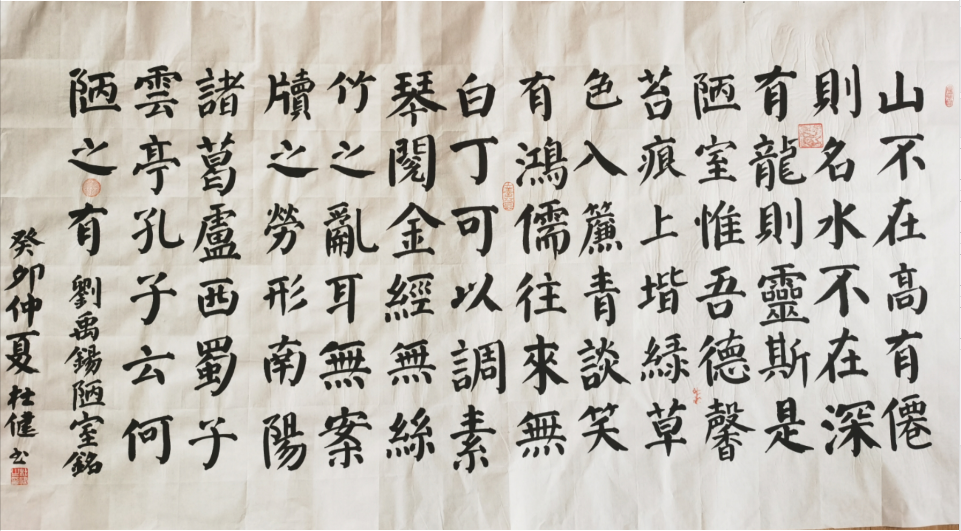 山不在高有僊
則名水不在深
有龍則靈斯是
陋室惟吾德馨
苔痕上堦緑草
色入簾青談笑
有鴻儒往來無
白丁可以調素
琴閱金經無絲
竹之亂耳無案
牘之勞形南陽
諸葛盧西蜀子
雲亭孔子云何
陋之有 劉禹錫陋室銘
癸卯仲夏杜健书